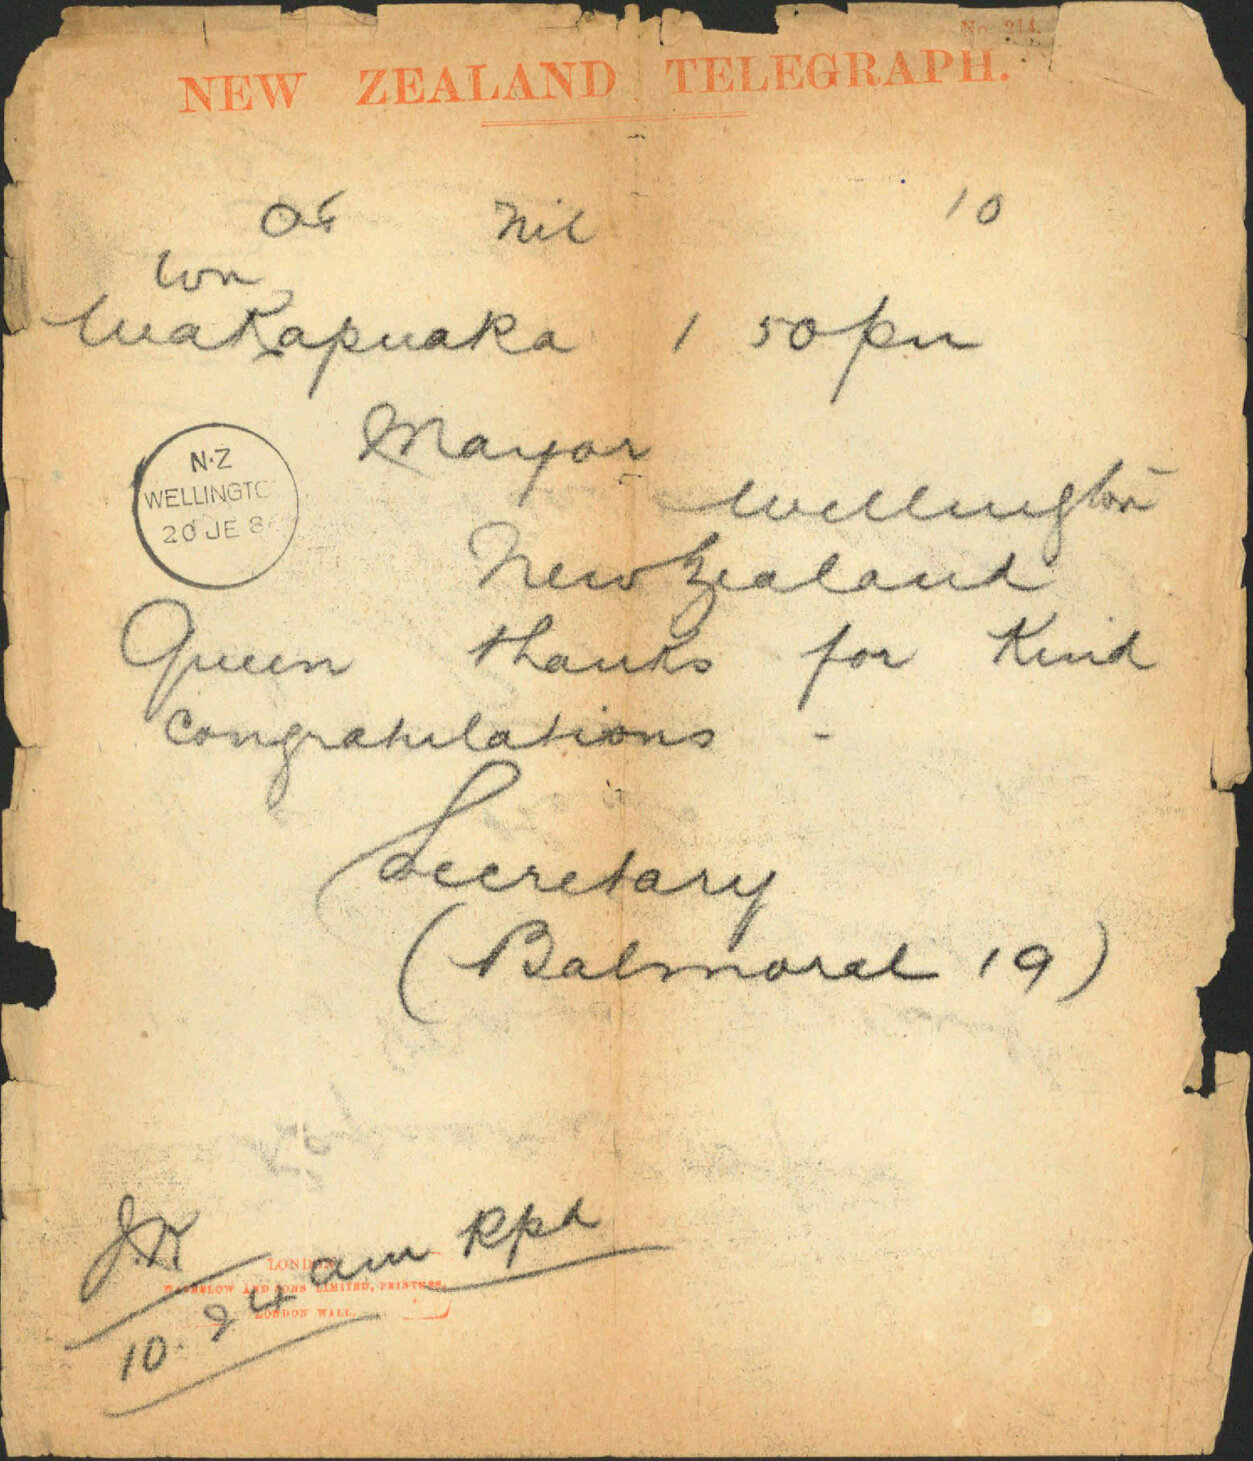 No. 214.
NEW ZEALAND TELEGRAPH.
Nil 10
Wn
Wakapuaka 1 50 pm
Mayor
Wellington
New Zealand
N.Z
WELLINGTO
20 JE 8
Queen thanks for Kind
congratulations -
Secretary
(Balmoral 19)
J.K.
10.24 am
LONDON
WATERLOW AND SONS LIMITED, PRINTERS,
LONDON WALL.